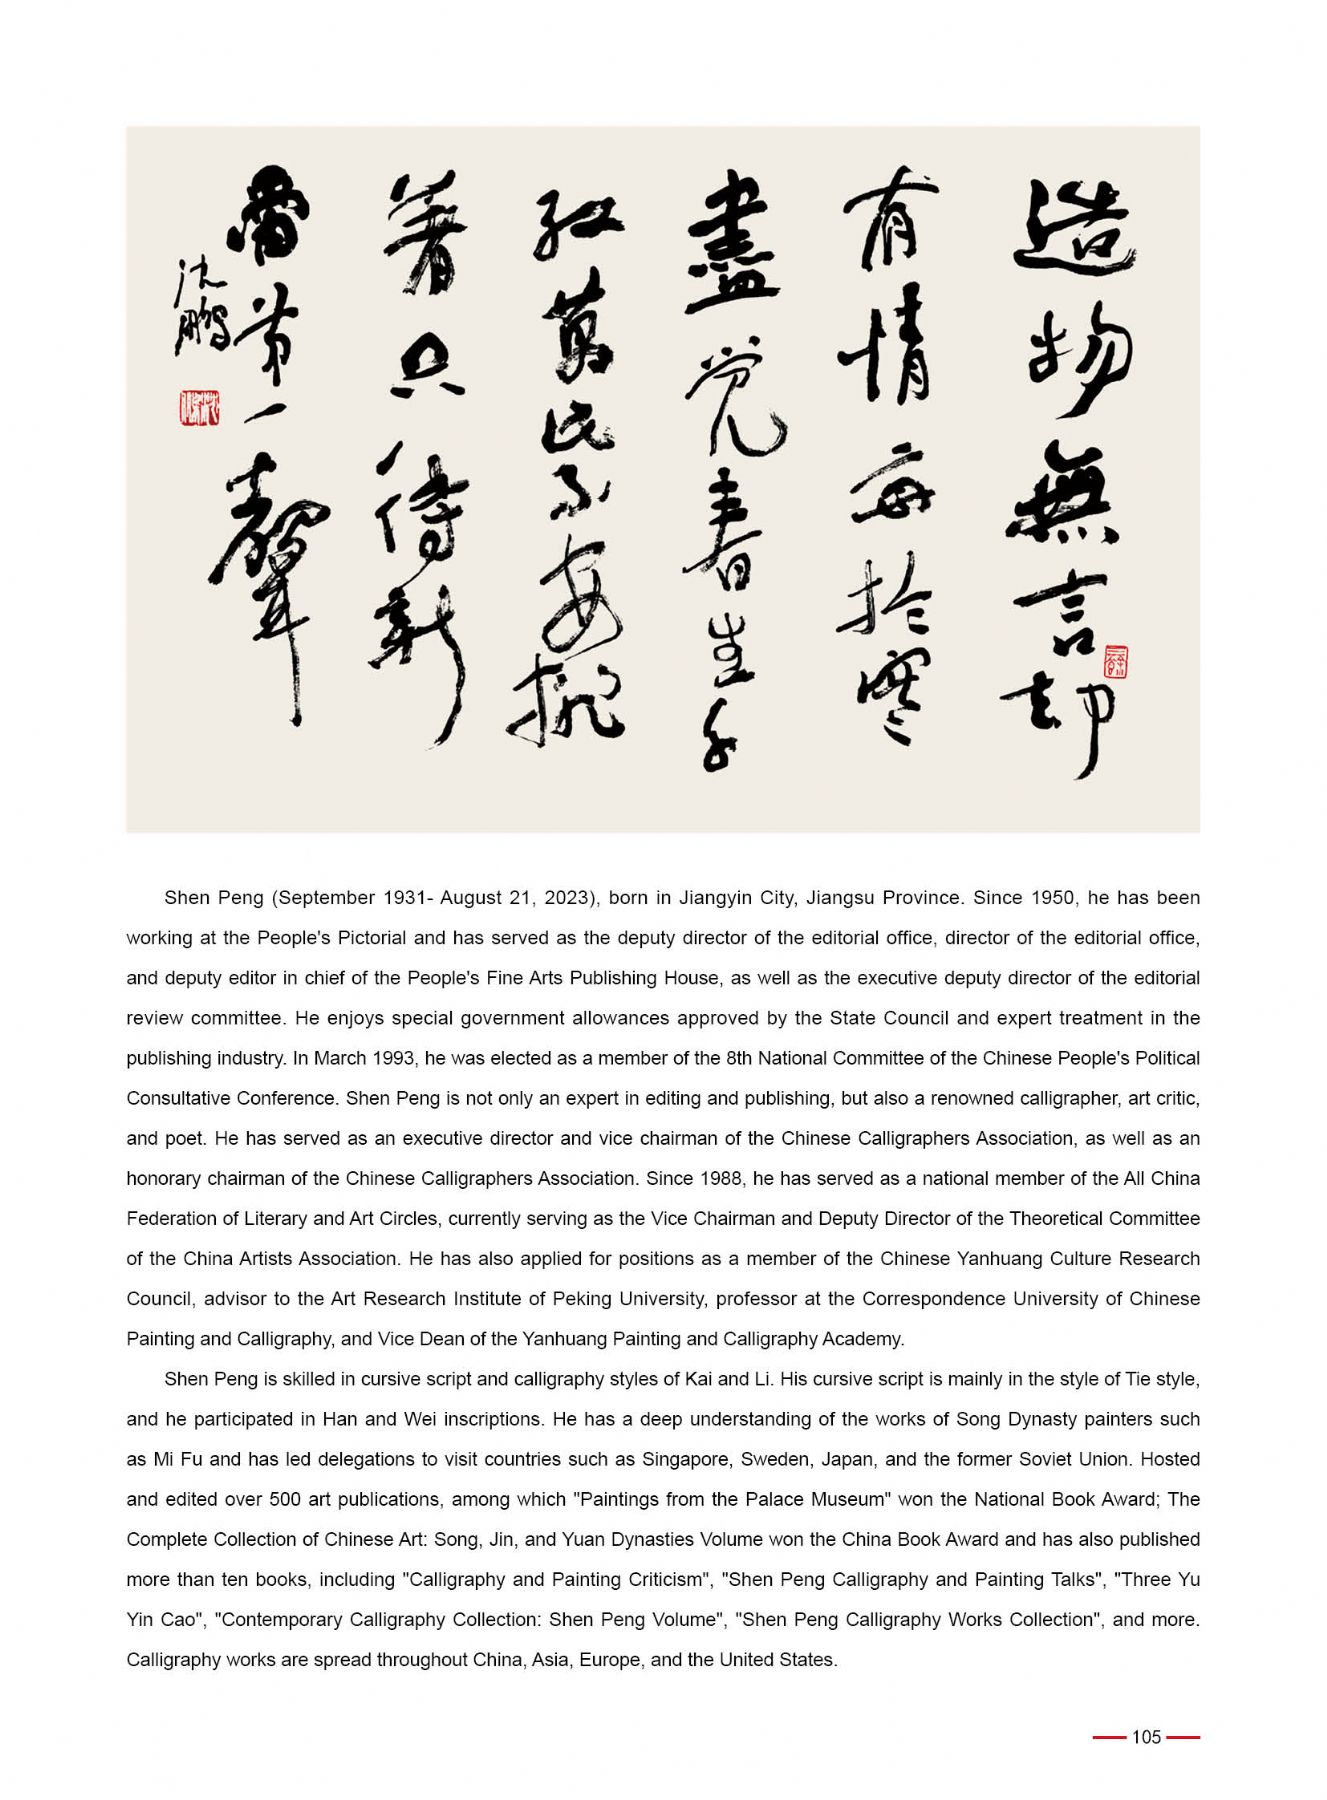 造物無言却
有情每於寒
盡觉春生千
红萬紫安排
著只待新
雷第一聲
沈鹏
Shen Peng (September 1931- August 21, 2023), born in Jiangyin City, Jiangsu Province. Since 1950, he has been
working at the People's Pictorial and has served as the deputy director of the editorial office, director of the editorial office,
and deputy editor in chief of the People's Fine Arts Publishing House, as well as the executive deputy director of the editorial
review committee. He enjoys special government allowances approved by the State Council and expert treatment in the
publishing industry. In March 1993, he was elected as a member of the 8th National Committee of the Chinese People's Political
Consultative Conference. Shen Peng is not only an expert in editing and publishing, but also a renowned calligrapher, art critic,
and poet. He has served as an executive director and vice chairman of the Chinese Calligraphers Association, as well as an
honorary chairman of the Chinese Calligraphers Association. Since 1988, he has served as a national member of the All China
Federation of Literary and Art Circles, currently serving as the Vice Chairman and Deputy Director of the Theoretical Committee
of the China Artists Association. He has also applied for positions as a member of the Chinese Yanhuang Culture Research
Council, advisor to the Art Research Institute of Peking University, professor at the Correspondence University of Chinese
Painting and Calligraphy, and Vice Dean of the Yanhuang Painting and Calligraphy Academy.
Shen Peng is skilled in cursive script and calligraphy styles of Kai and Li. His cursive script is mainly in the style of Tie style,
and he participated in Han and Wei inscriptions. He has a deep understanding of the works of Song Dynasty painters such
as Mi Fu and has led delegations to visit countries such as Singapore, Sweden, Japan, and the former Soviet Union. Hosted
and edited over 500 art publications, among which "Paintings from the Palace Museum" won the National Book Award; The
Complete Collection of Chinese Art: Song, Jin, and Yuan Dynasties Volume won the China Book Award and has also published
more than ten books, including "Calligraphy and Painting Criticism", "Shen Peng Calligraphy and Painting Talks", "Three Yu
Yin Cao", "Contemporary Calligraphy Collection: Shen Peng Volume", "Shen Peng Calligraphy Works Collection", and more.
Calligraphy works are spread throughout China, Asia, Europe, and the United States.
105